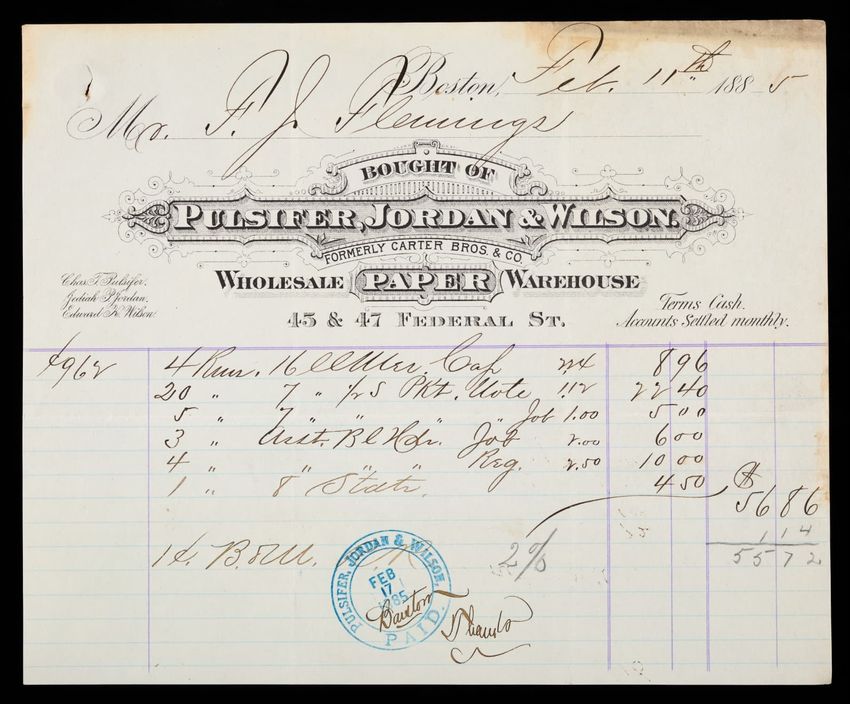 Boston, Feb. 11th 1885
Mr. F. J. Flemings
BOUGHT OF
PULSIFER, JORDAN & WILSON.
FORMERLY CARTER BROS. & CO.
WHOLESALE PAPER WAREHOUSE
45 & 47 FEDERAL ST.
Chas. T. Pulsifer.
Jediah P. Jordan.
Edward H. Wilson.
Terms Cash.
Accounts Settled monthly.
4962 4 16 Cap 224 8 96
20 " 7 " 1/2 S Pkt. Note 1.12 22 40
5 " 7 " " " Job 1.00 5 00
3 " Asst. Job 2.00 6 00
4 " " " " Reg. 2.50 10 00
1 " 8 " 4 50
$ 56 86
2% 1 14
55 72
PULSIFER, JORDAN & WILSON,
FEB
17
1885
PAID.